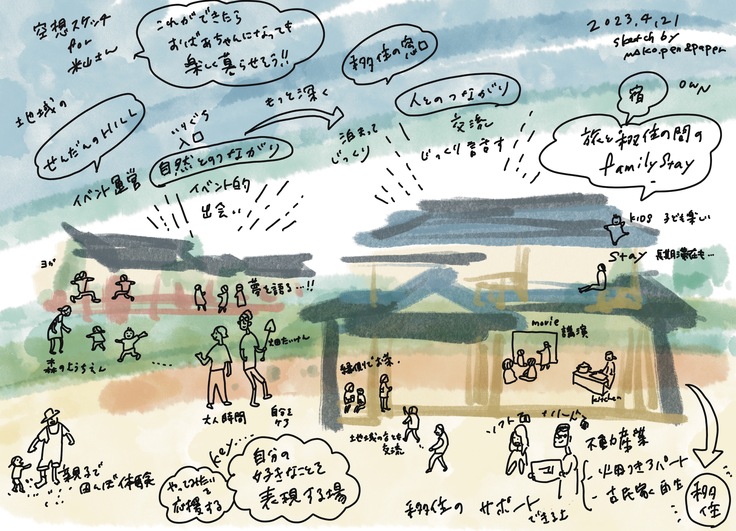 空想スケッチ
for
米山さん
これができたら
おばあちゃんになっても
楽しく暮らせそう!!
移住の窓口
2023.4.21
sketch by
mako.pen&paper
地域の
せんだんのHILL
イベント運営
入口
自然とのつながり
イベント的
出会い
もっと深く
泊まって
じっくり
人とのつながり
交流
じっくり
宿
OWN
旅と移住の間の
family stay
KIDS 子ども楽しい
stay 長期滞在も…
ヨガ
夢を語る…!!
森のようちえん
畑たいけん
大人時間
自分を
movie
講演
kitchen
縁側でお茶
地域の
交流
親子で
田んぼ体験
key…
やってみたいを
応援する
自分の
好きなことを
表現する場
ソフト面
ハード面
移住の
サポート
できる上
不動産業
畑つきアパート
古民家再生
移住